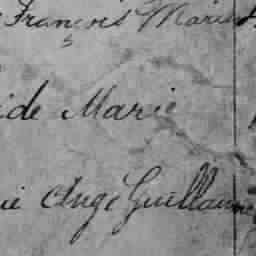 François Marie
ide Marie
ie Ange Guillaume